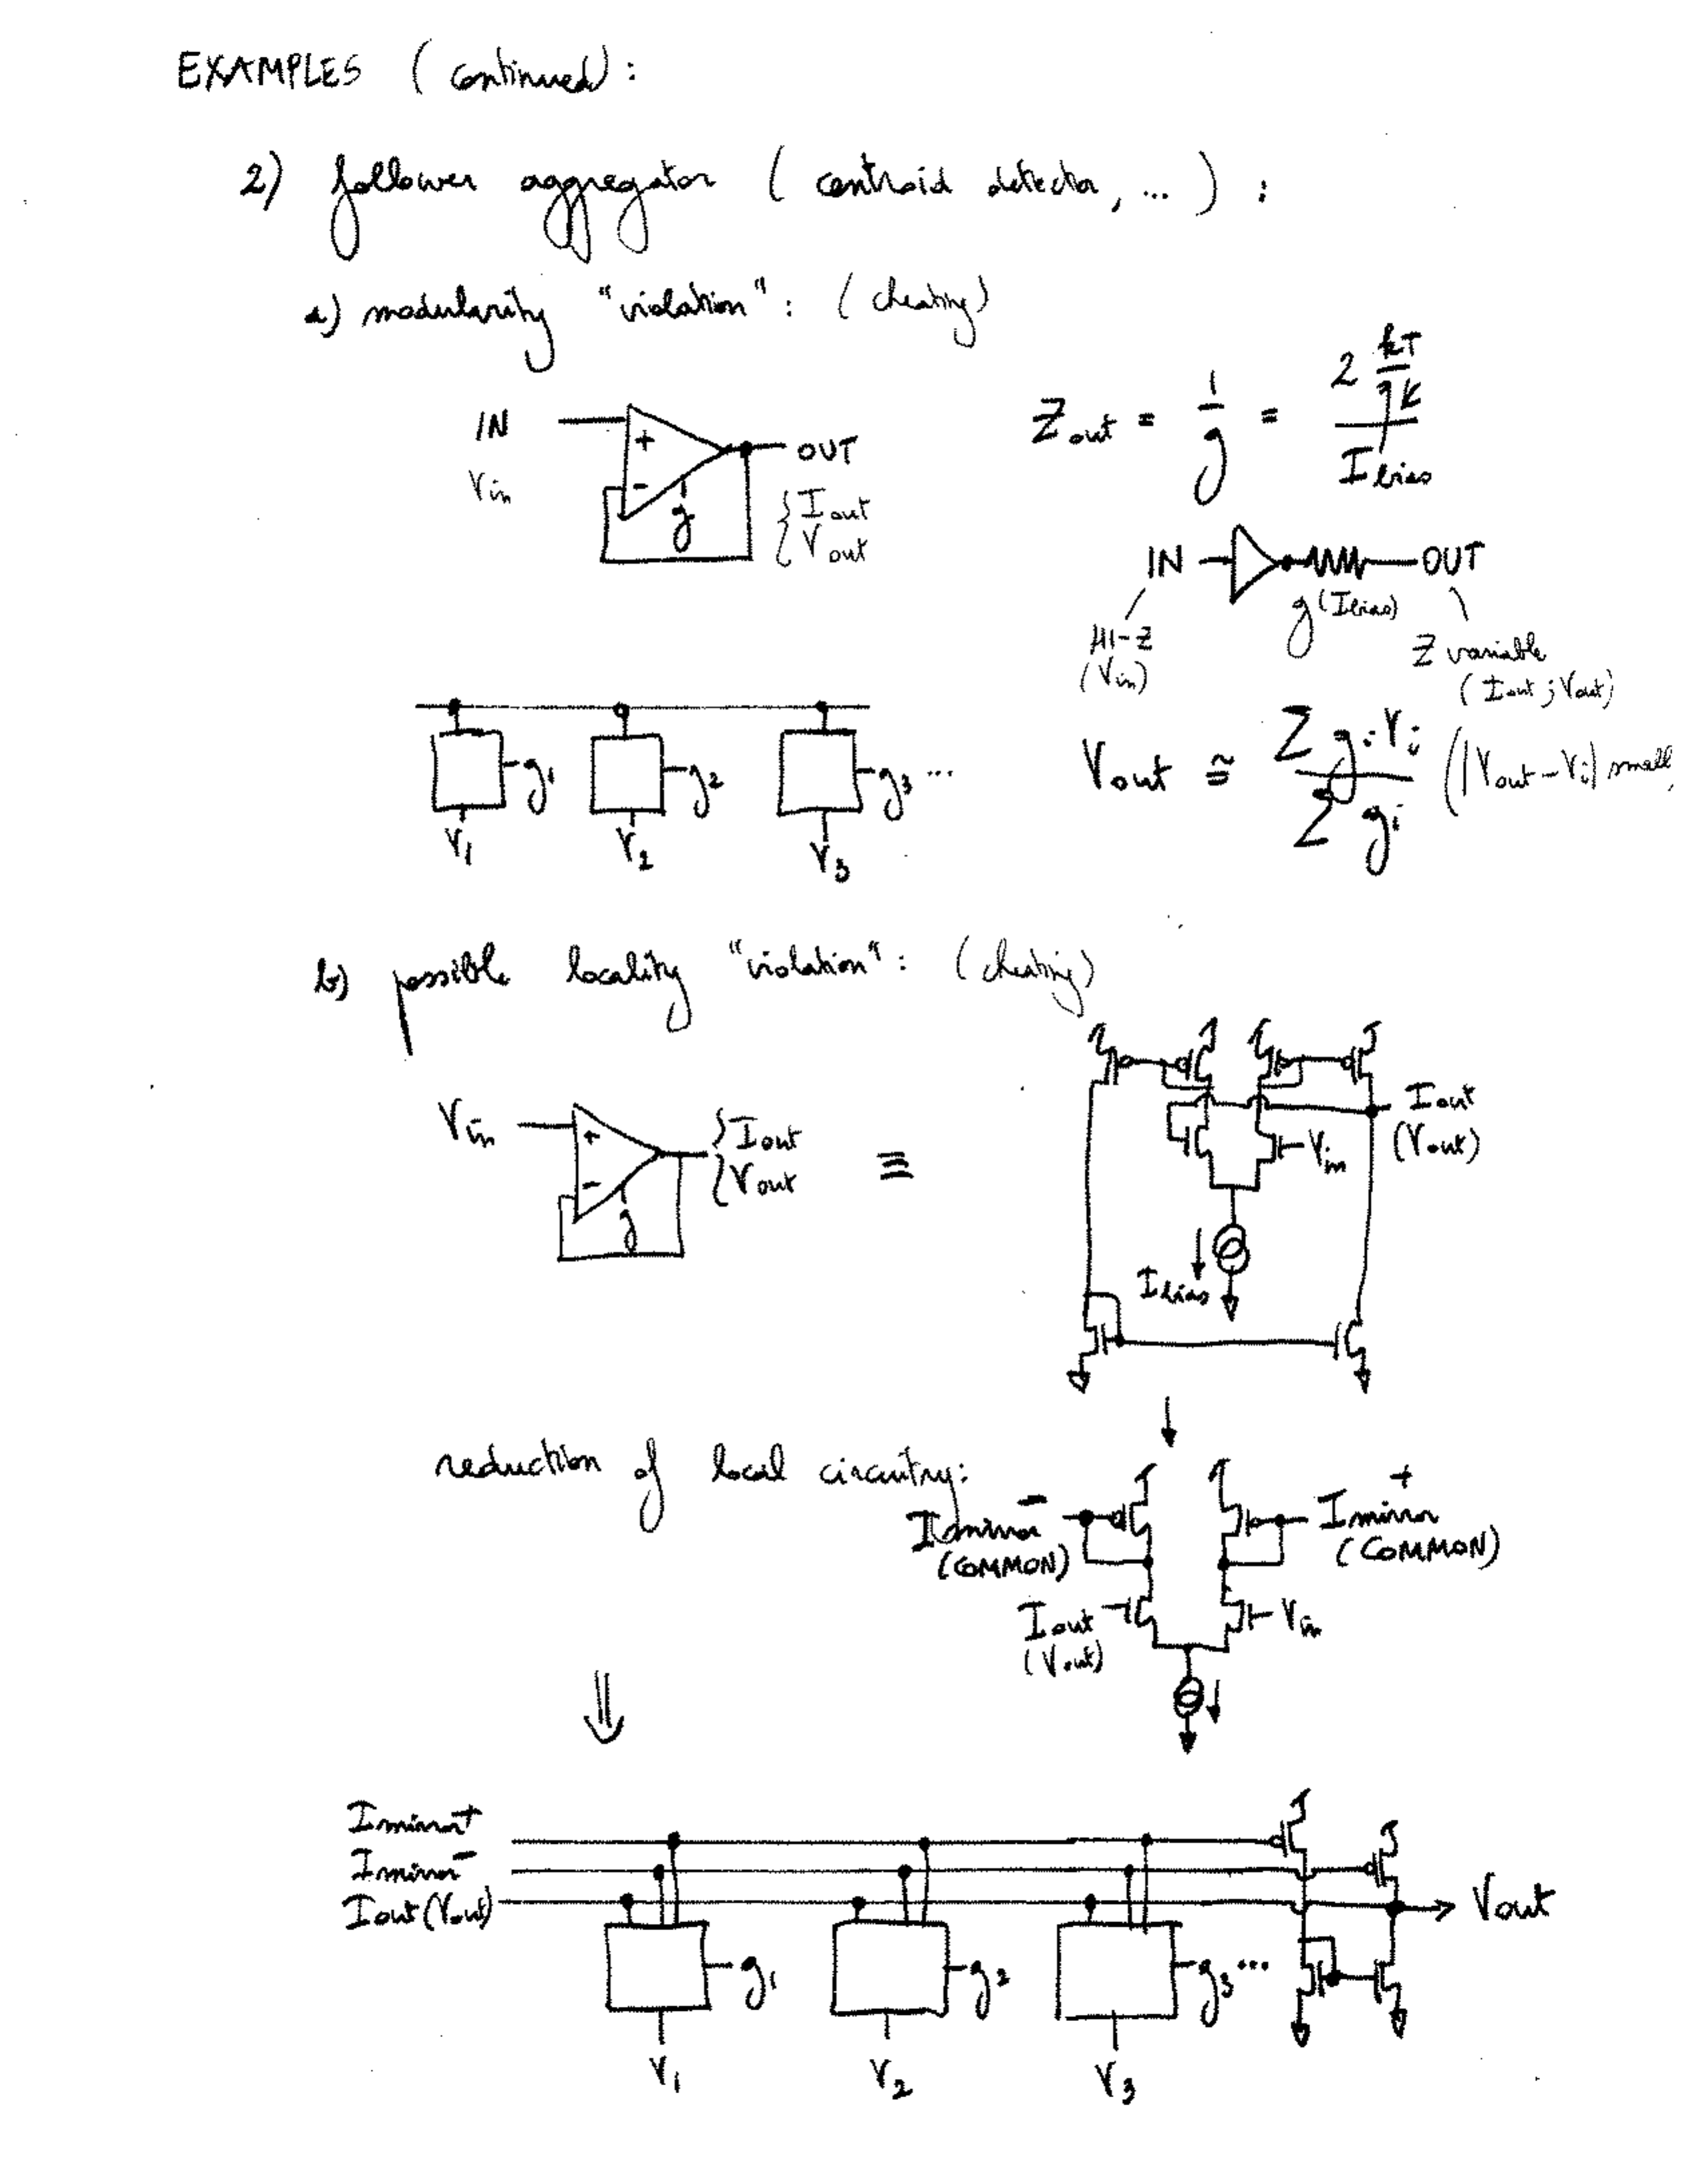 EXAMPLES (continued):
2) follower aggregator (centroid detector, ...) :
a) modularity "violation": (cheating)
IN
Vin
+
-
g
OUT
{ Iout
Vout
Zout = 1/g = 2 kT/qκ / Ibias
IN
OUT
g(Ibias)
HI-Z
(Vin)
Z variable
(Iout ; Vout)
g1
g2
g3 ...
V1
V2
V3
Vout ≅ Σ gi Vi / Σ gi (|Vout - Vi| small,
b) possible locality "violation": (cheating)
Vin
+
-
g
{ Iout
Vout
≡
Iout
(Vout)
Vin
Ibias
reduction of local circuitry:
Imirror-
(COMMON)
Imirror+
(COMMON)
Iout
(Vout)
Vin
⇓
Imirror+
Imirror-
Iout(Vout)
Vout
g1
g2
g3 ...
V1
V2
V3